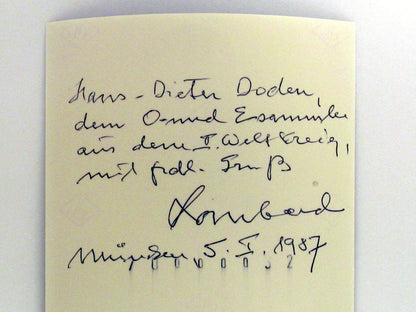 Hans-Dieter Doden,
dem O- und E sammler
aus dem II. Weltkreig,
mit frdl. Gruß
Lombard
München, 5. I. 1987